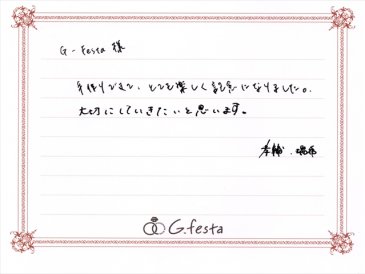 G-festa 様
手作りできて、とても楽しく記念になりました。
大切にしていきたいと思います。
G.festa